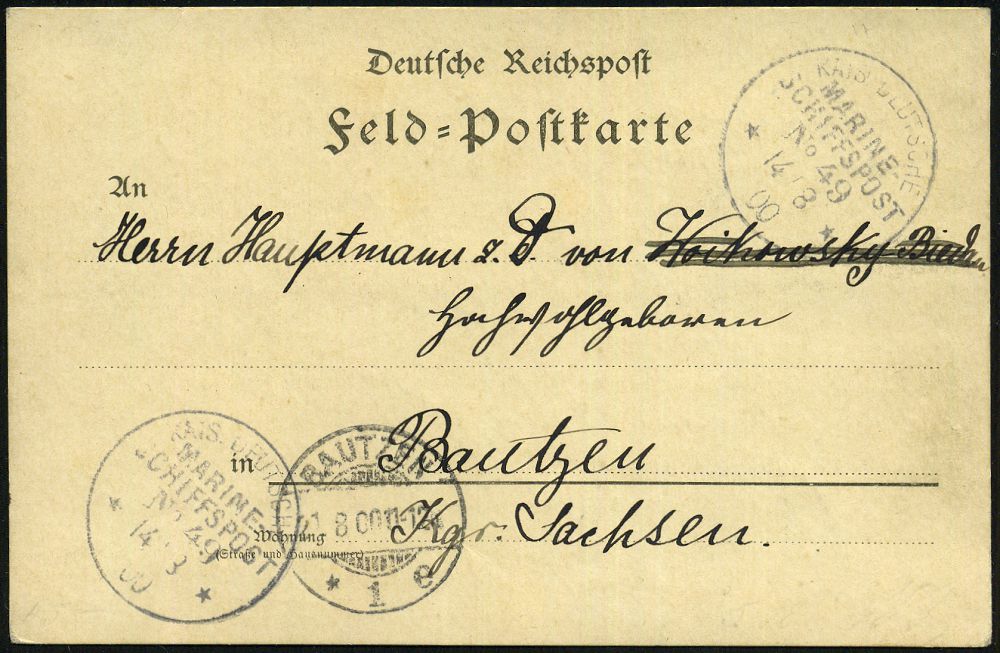 Deutsche Reichspost
Feld-Postkarte
KAIS. DEUTSCHE
MARINE-
SCHIFFSPOST
No 49
14 8
00
An
Herrn Hauptmann z. D. von Woikowsky-Biedau
Hochwohlgeboren
in Bautzen
Kgr. Sachsen.
Wohnung
(Straße und Hausnummer)
KAIS. DEUTSCHE
MARINE-
SCHIFFSPOST
No 49
14 8
00
BAUTZEN
8 00 11-12
1 e